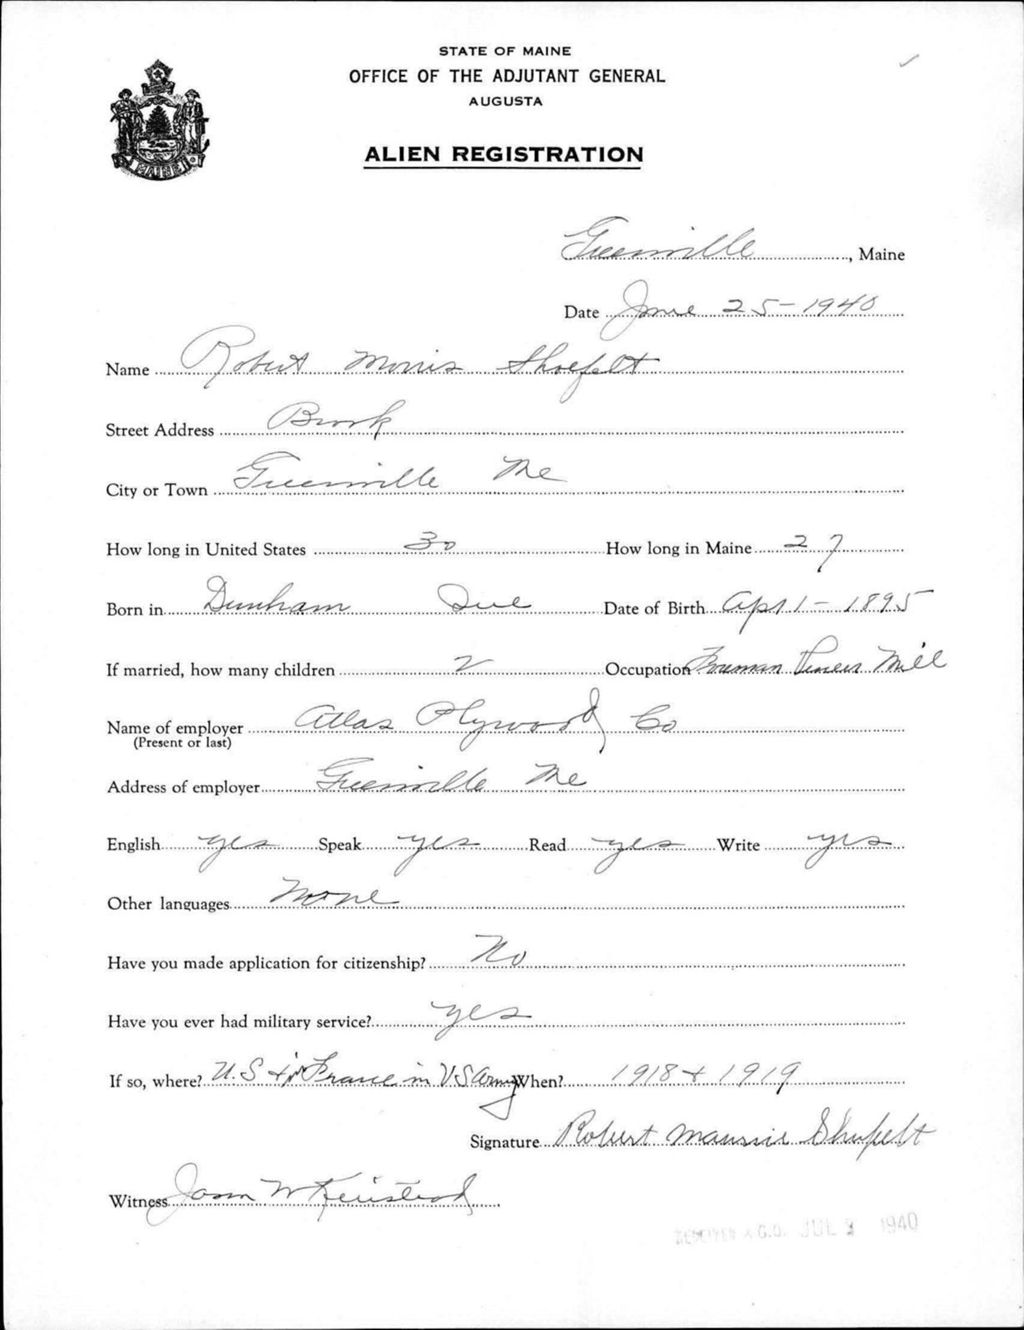 STATE OF MAINE
OFFICE OF THE ADJUTANT GENERAL
AUGUSTA
ALIEN REGISTRATION
MAINE
Greenville, Maine
Date June 25-1940
Name Robert Morris Shoefelt
Street Address Brook
City or Town Greenville Me
How long in United States 30 How long in Maine 27
Born in Dunham Que Date of Birth Apr 1-1895
If married, how many children 2 Occupation Foreman Veneer Mill
Name of employer Atlas Plywood Co
(Present or last)
Address of employer Greenville Me
English yes Speak yes Read yes Write yes
Other languages None
Have you made application for citizenship? No
Have you ever had military service? yes
If so, where? U.S + in France in U S Army When? 1918 + 1919
Signature Robert Shufelt
Witness W
RECEIVED A.G.O. JUL 2 1940